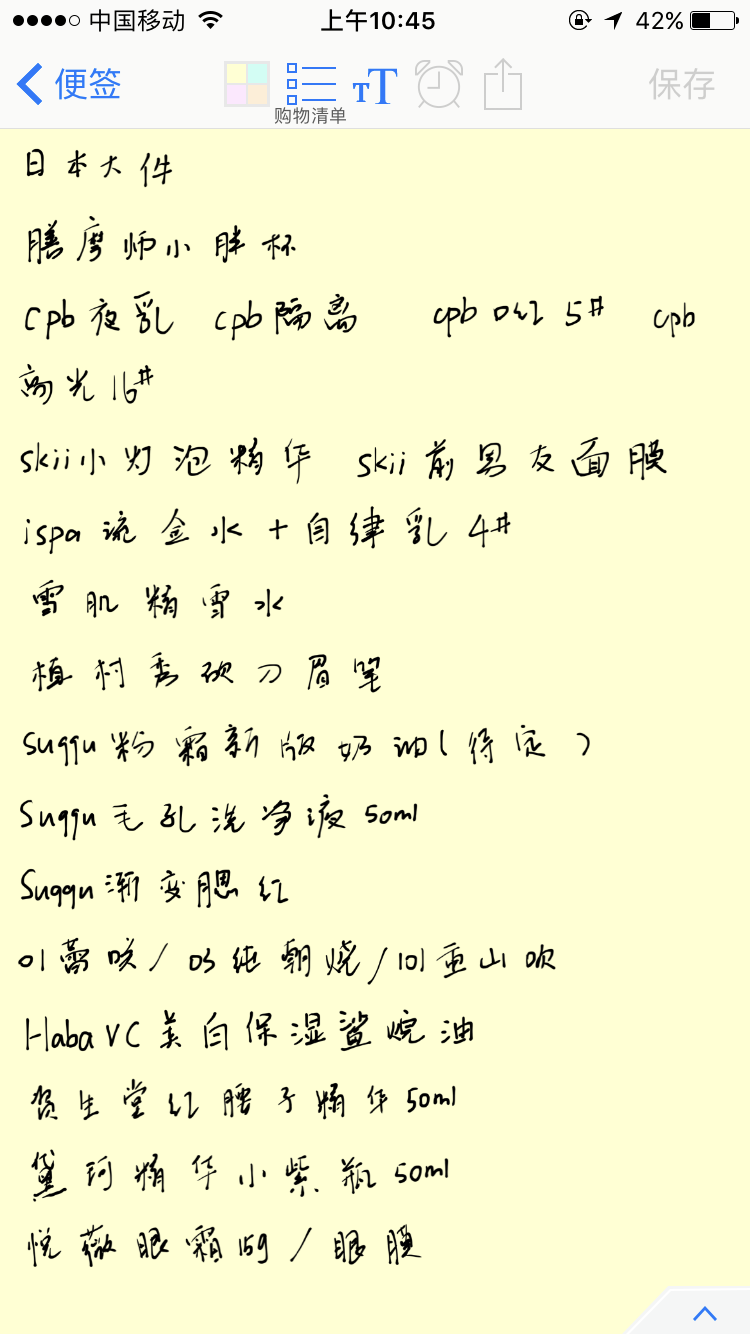 中国移动 上午10:45 42%
便签 保存
购物清单
日本大件
膳魔师小胖杯
cpb夜乳 cpb隔离 cpb口红5# cpb
高光16#
skii小灯泡精华 skii前男友面膜
ispa流金水+自律乳4#
雪肌精雪水
植村秀砍刀眉笔
Suqqu粉霜新版奶油(待定)
Suqqu毛孔洗净液50ml
Suqqu渐变腮红
01蕾咲/03纯朝烧/101重山吹
Haba VC美白保湿鲨烷油
资生堂红腰子精华50ml
黛珂精华小紫瓶50ml
悦薇眼霜15g/眼膜